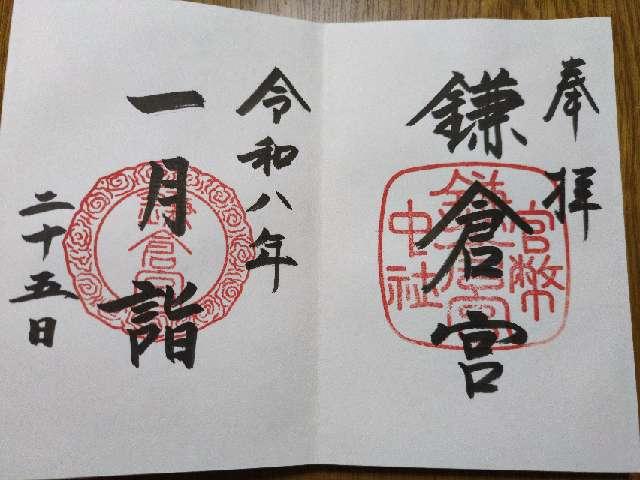 奉拝
鎌倉宮
官幣
鎌倉宮
中社
令和八年
一月詣
二十五日
鎌倉宮